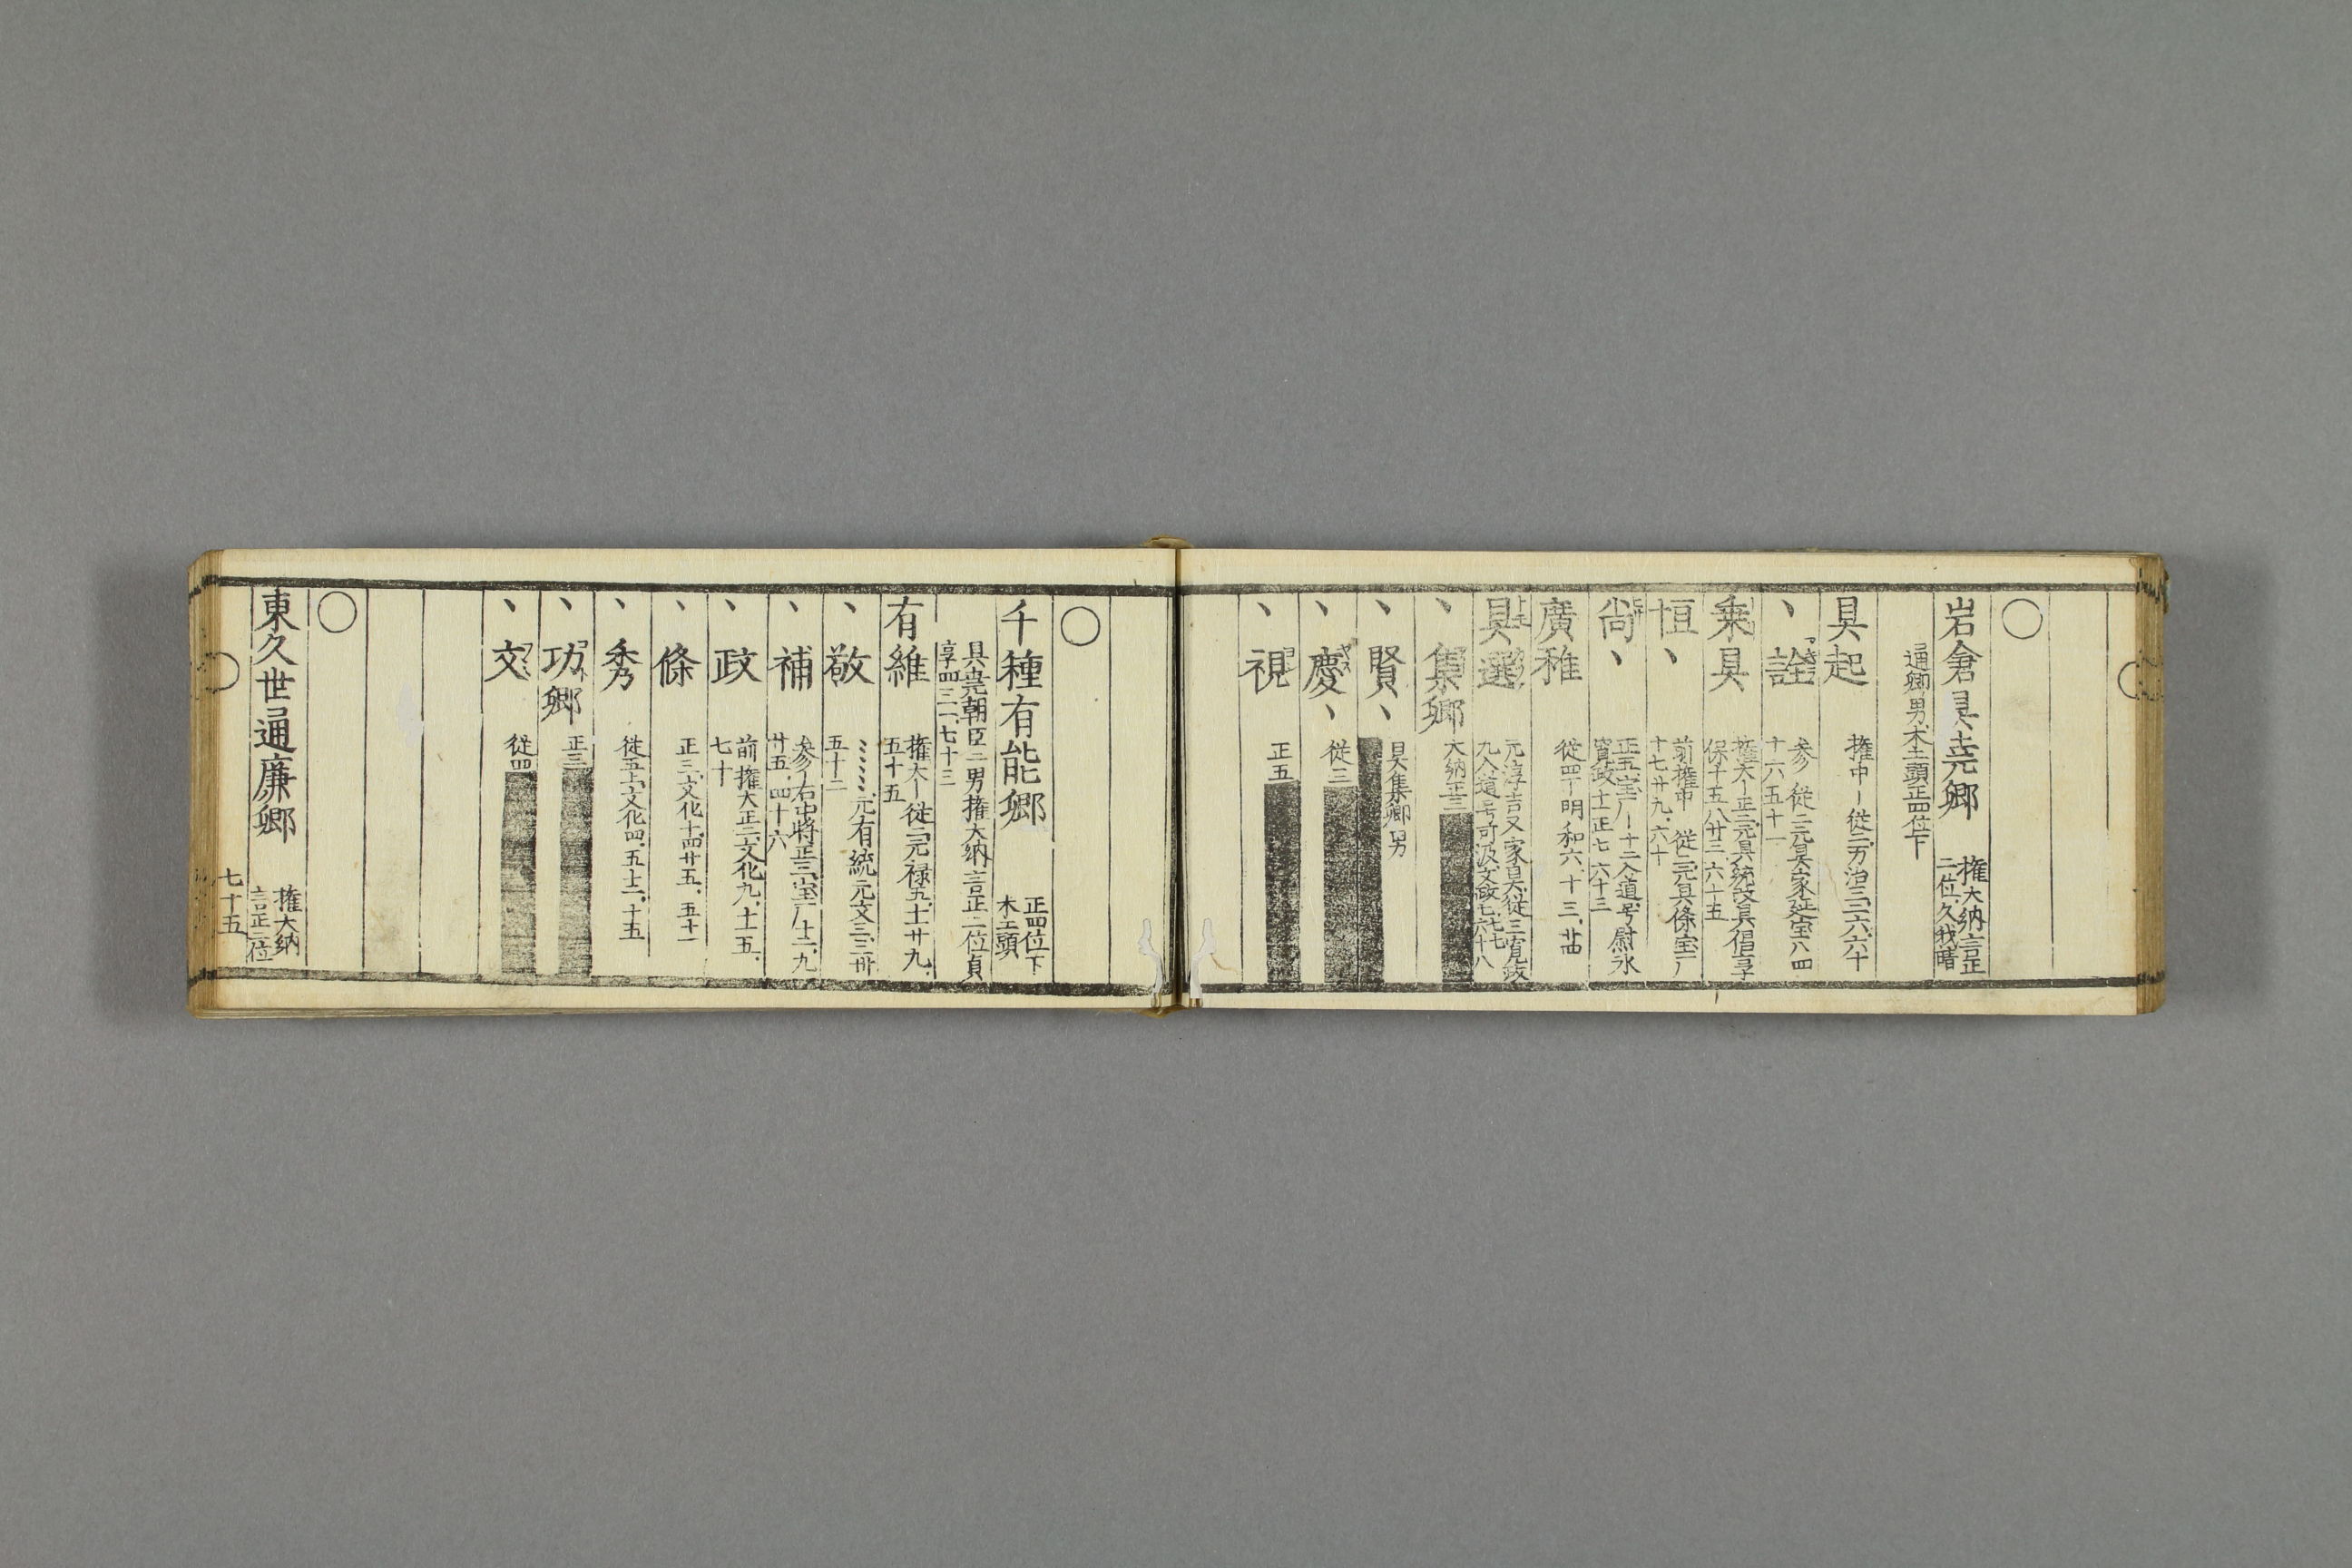 岩倉具堯卿 権大納言正二位久我晴
通卿男木工頭正四位下
具起 権中ー従二万治三二六六十
丶詮 参 従二元具家延宝八四十六五十一
乗具 権大ー正二元具統改具倡享保十五八廿三六十五
恒丶 前権中 従二元具條宝厂十七廿九六十
尚丶 正五宝厂ー十二入道号慰水寛政十一正七六十三
廣雅 従四下明和六十三廿四
具選 元淳吉又家具従三寛政九入道号可汲文政七七七六十八
丶集卿 大納正三
丶賢丶 具集卿男
丶慶丶 従三
丶視 正五
千種有能卿 正四位下木工頭
具堯朝臣二男権大納言正二位貞享四三一七十三
有維 権大ー従二元禄五十一廿九五十五
丶敬 ミミミミ元有統元文三三卅五十二
丶補 参ー右中将正三宝厂十二九廿五四十六
丶政 前権大正二文化九十一五七十
丶條 正三文化十四廿五五十一
丶秀 従五上文化四五十二十五
丶功卿 正三
丶文 従四
東久世通廉卿 権大納言正二位
七十五